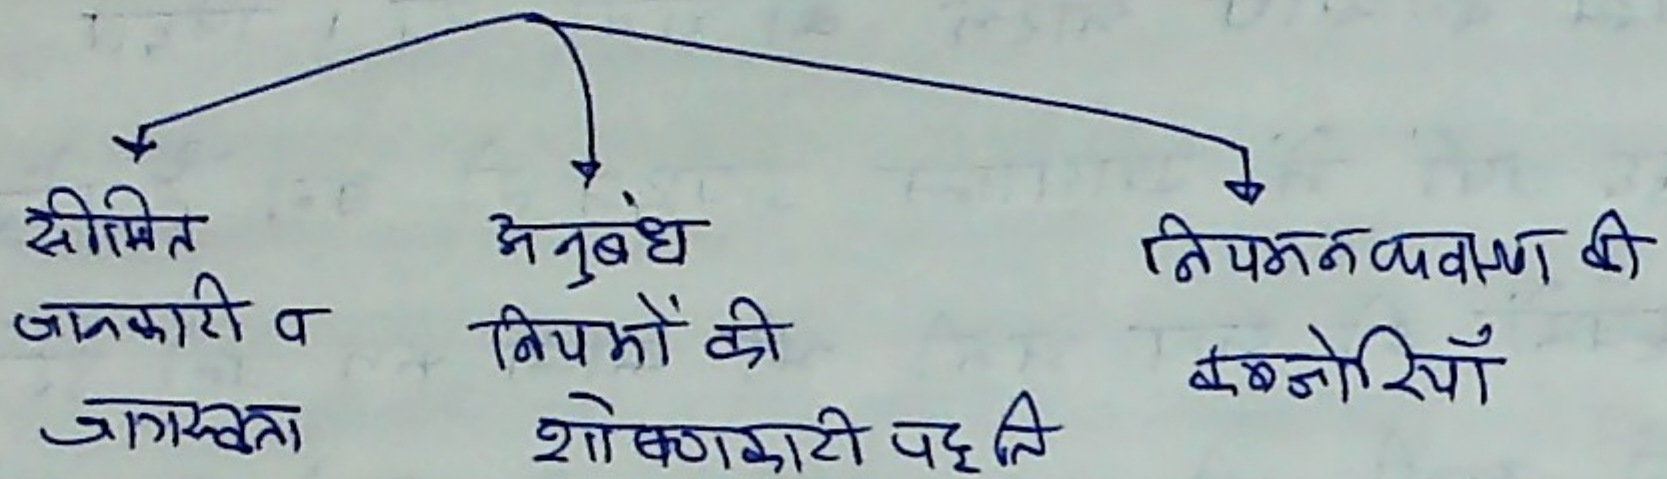 सीमित
जानकारी व
जागरूकता
अनुबंध
नियमों की
शोषणकारी पद्धति
नियमन व्यवस्था की
कमजोरियाँ